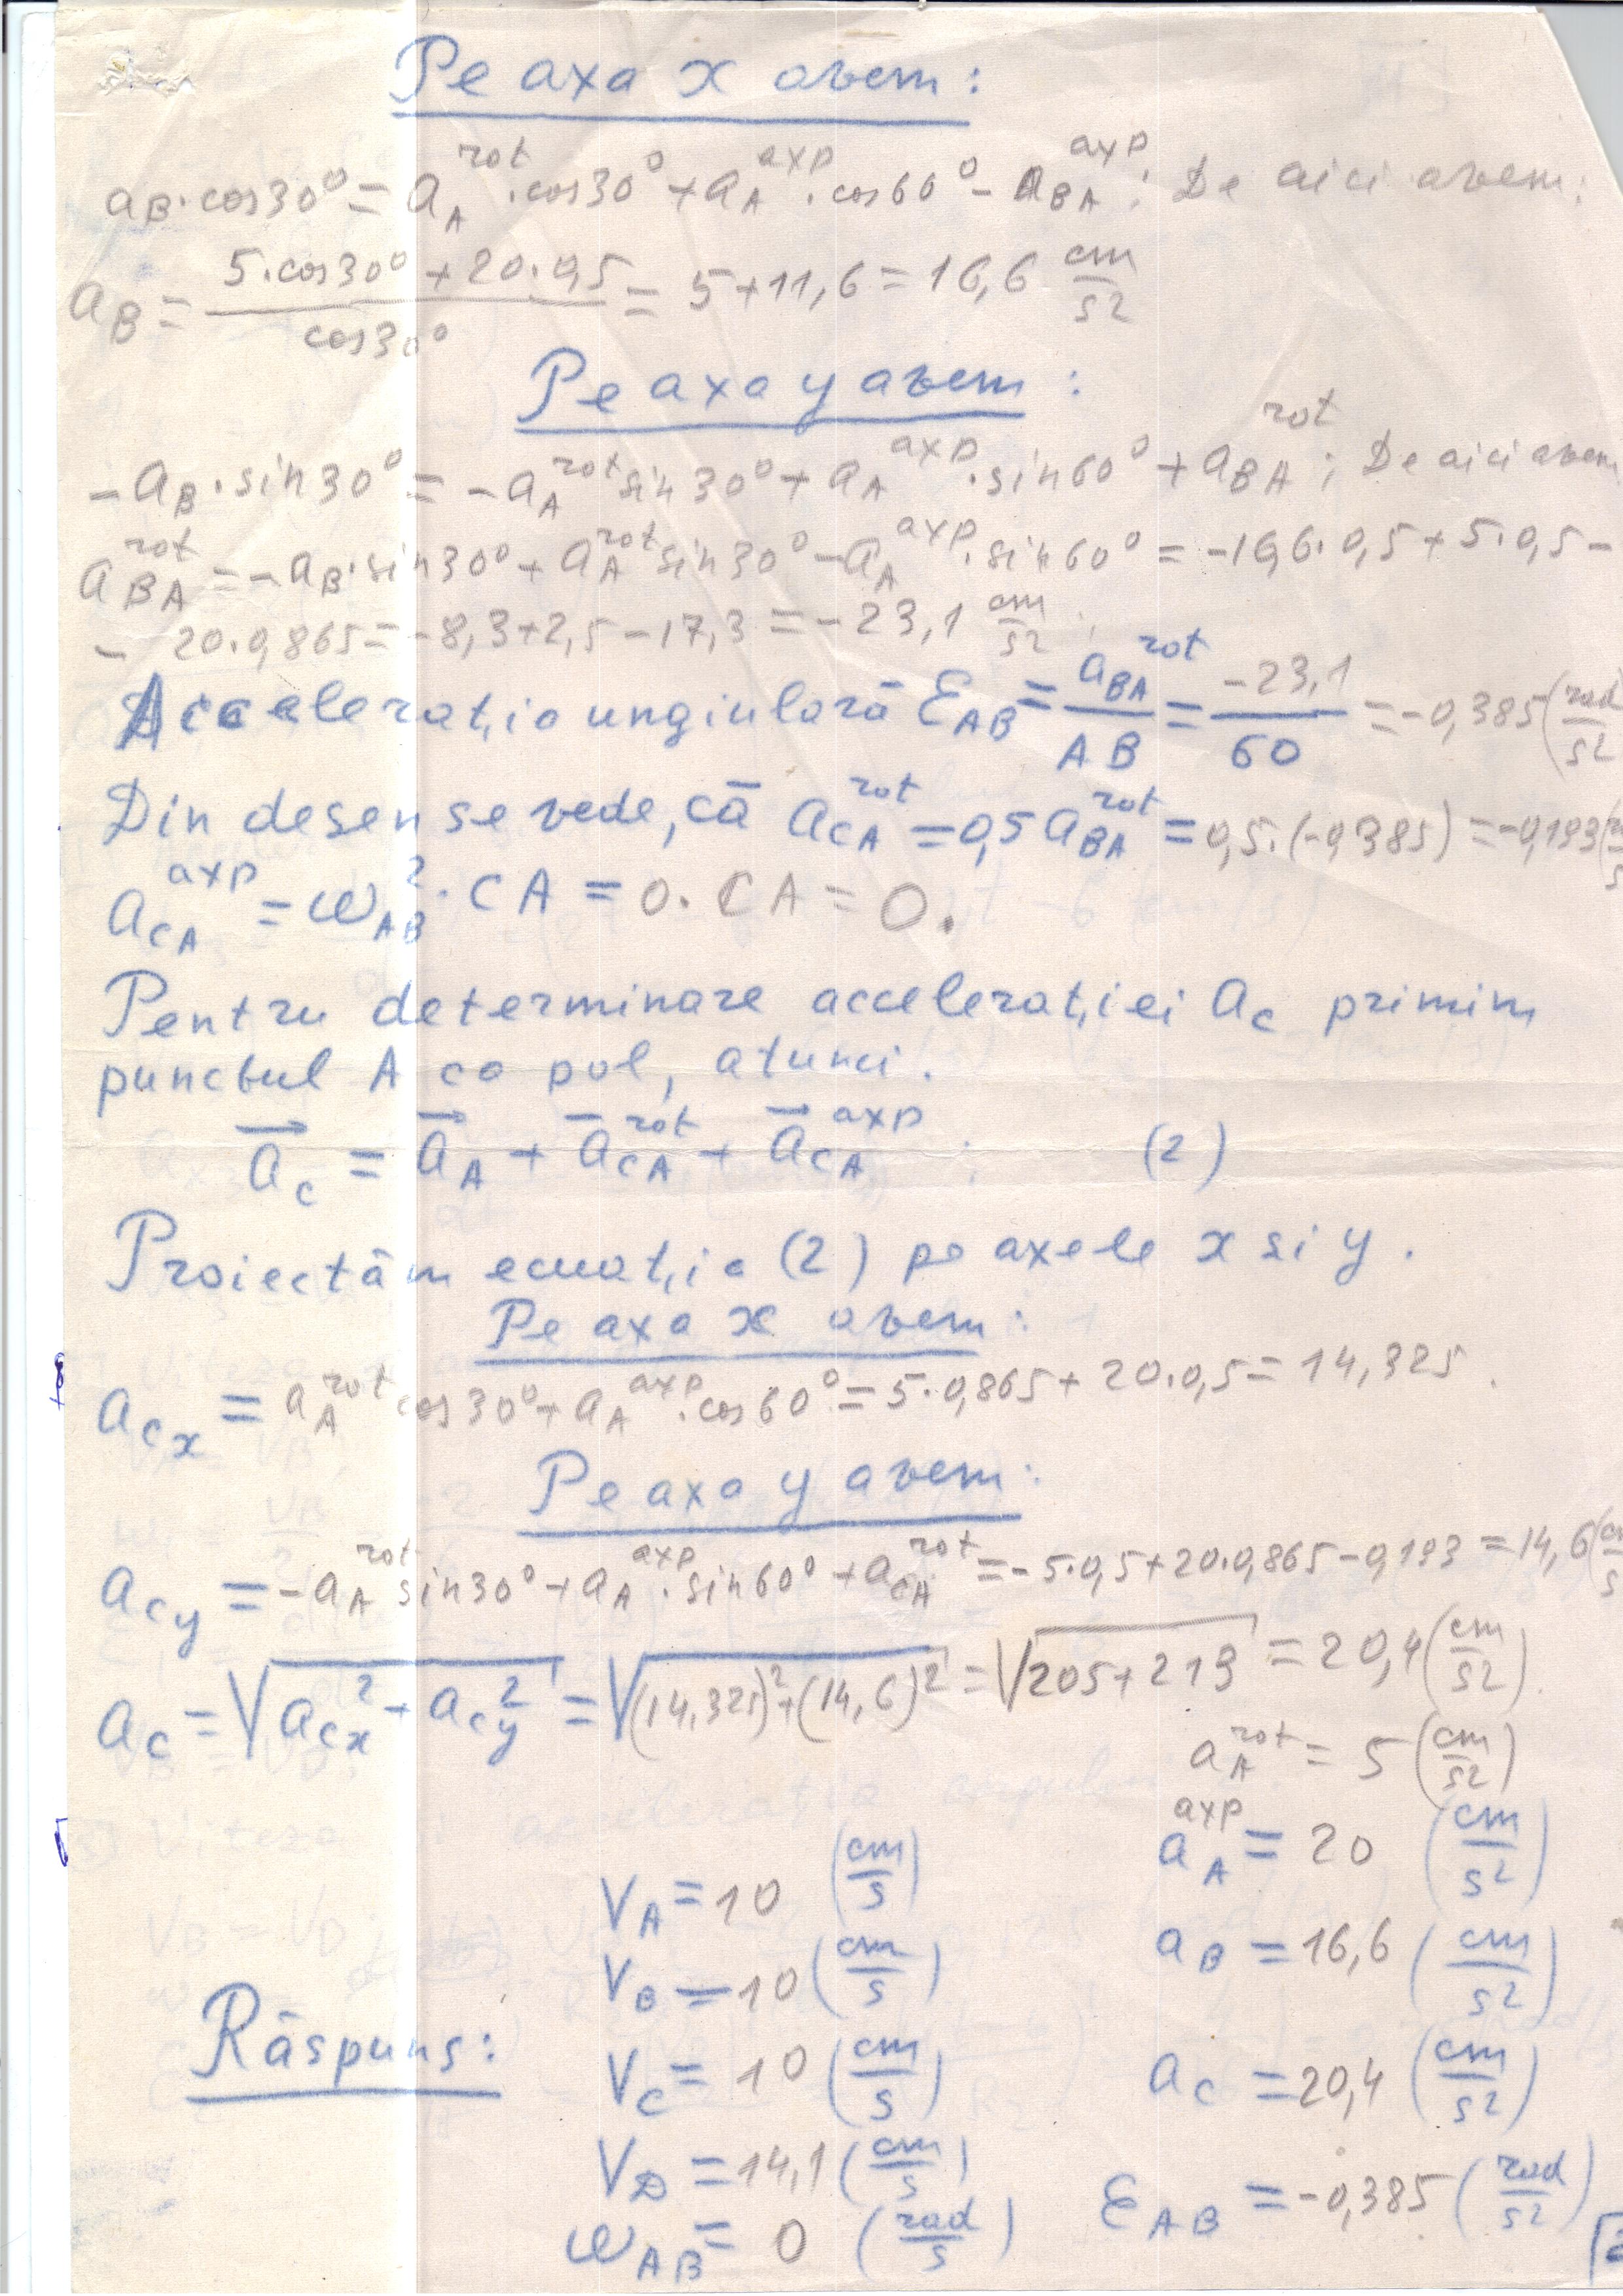 Pe axa x avem:
a_B·cos30° = a_A^rot·cos30° + a_A^axp·cos60° - a_BA^axp; De aici avem:
a_B = (5·cos30° + 20·0,5)/cos30° = 5+11,6 = 16,6 cm/s²
Pe axa y avem:
-a_B·sin30° = -a_A^rot sin30° + a_A^axp·sin60° + a_BA^rot; De aici avem
a_BA^rot = -a_B·sin30° + a_A^rot sin30° - a_A^axp·sin60° = -16,6·0,5 + 5·0,5 -
- 20·0,865 = -8,3+2,5-17,3 = -23,1 cm/s²;
Accelerația unghiulară ε_AB = a_BA^rot/AB = -23,1/60 = -0,385 (rad/s²
Din desen se vede, că a_CA^rot = 0,5 a_BA^rot = 0,5·(-0,385) = -0,193
a_CA^axp = ω_AB²·CA = 0·CA = 0.
Pentru determinare accelerației a_c primim
punctul A ca pol, atunci.
a_c = a_A + a_CA^rot + a_CA^axp ; (2)
Proiectăm ecuația (2) pe axele x si y.
Pe axa x avem:
a_cx = a_A^rot cos30° + a_A^axp·cos60° = 5·0,865 + 20·0,5 = 14,325.
Pe axa y avem:
a_cy = -a_A^rot sin30° + a_A^axp·sin60° + a_CA^rot = -5·0,5+20·0,865-0,193 = 14,6
a_c = √(a_cx² + a_cy²) = √((14,325)²+(14,6)²) = √(205+213) = 20,4 (cm/s²).
a_A^rot = 5 (cm/s²)
V_A = 10 (cm/s) a_A^axp = 20 (cm/s²)
V_B = 10 (cm/s) a_B = 16,6 (cm/s²)
Răspuns: V_C = 10 (cm/s) a_C = 20,4 (cm/s²)
V_D = 14,1 (cm/s)
ω_AB = 0 (rad/s) ε_AB = -0,385 (rad/s²)